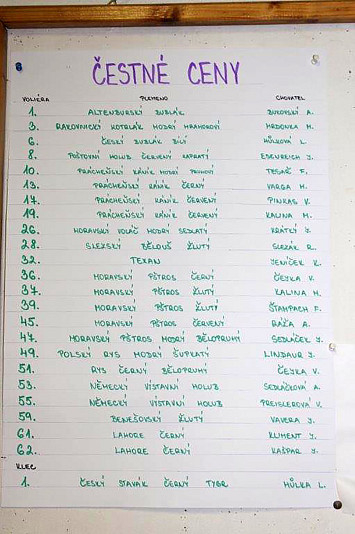 ČESTNÉ CENY
VOLIÉRA PLEMENO CHOVATEL
1. ALTENBURSKÝ BUBLÁK BUKOVSKÝ A.
3. RAKOVNICKÝ KOTRLÁK MODRÝ MRAMOROVÝ HRDONKA M.
6. ČESKÝ BUBLÁK BÍLÝ HŮLKOVÁ L.
8. POŠTOVNÍ HOLUB ČERVENÝ KAPRATÝ EDENREICH J.
10. PRÁCHEŇSKÝ KÁNÍK MODRÝ TESAŘ F.
13. PRÁCHEŇSKÝ KÁNÍK ČERNÝ VARGA M.
17. PRÁCHEŇSKÝ KÁNÍK ČERVENÝ PINKAS V.
19. PRÁCHEŇSKÝ KÁNÍK ČERVENÝ KALINA M.
26. MORAVSKÝ VOLÁČ MODRÝ SEDLATÝ KRÁTKÝ J.
28. SLEZSKÝ BĚLOUŠ ŽLUTÝ SLEZÁK R.
32. TEXAN JENÍČEK K.
36. MORAVSKÝ PŠTROS ČERNÝ ČEJKA V.
37. MORAVSKÝ PŠTROS ŽLUTÝ KALINA M.
39. MORAVSKÝ PŠTROS ŽLUTÝ ŠTAMPACH F.
45. MORAVSKÝ PŠTROS ČERVENÝ RÁŽA A.
47. MORAVSKÝ PŠTROS MODRÝ BĚLOPRUHÝ SEDLÁČEK J.
49. POLSKÝ RYS MODRÝ ŠUPKATÝ LINDAUR J.
51. RYS ČERNÝ BĚLOPRUHÝ ČEJKA V.
53. NĚMECKÝ VÝSTAVNÍ HOLUB SEDLÁČKOVÁ A.
55. NĚMECKÝ VÝSTAVNÍ HOLUB PREISLEROVÁ V.
59. BENEŠOVSKÝ ŽLUTÝ VAVERA J.
61. LAHORE ČERNÝ KLIMENT J.
62. LAHORE ČERNÝ KAŠPAR J.
KLEC
1. ČESKÝ STAVÁK ČERNÝ TYGR HŮLKA L.